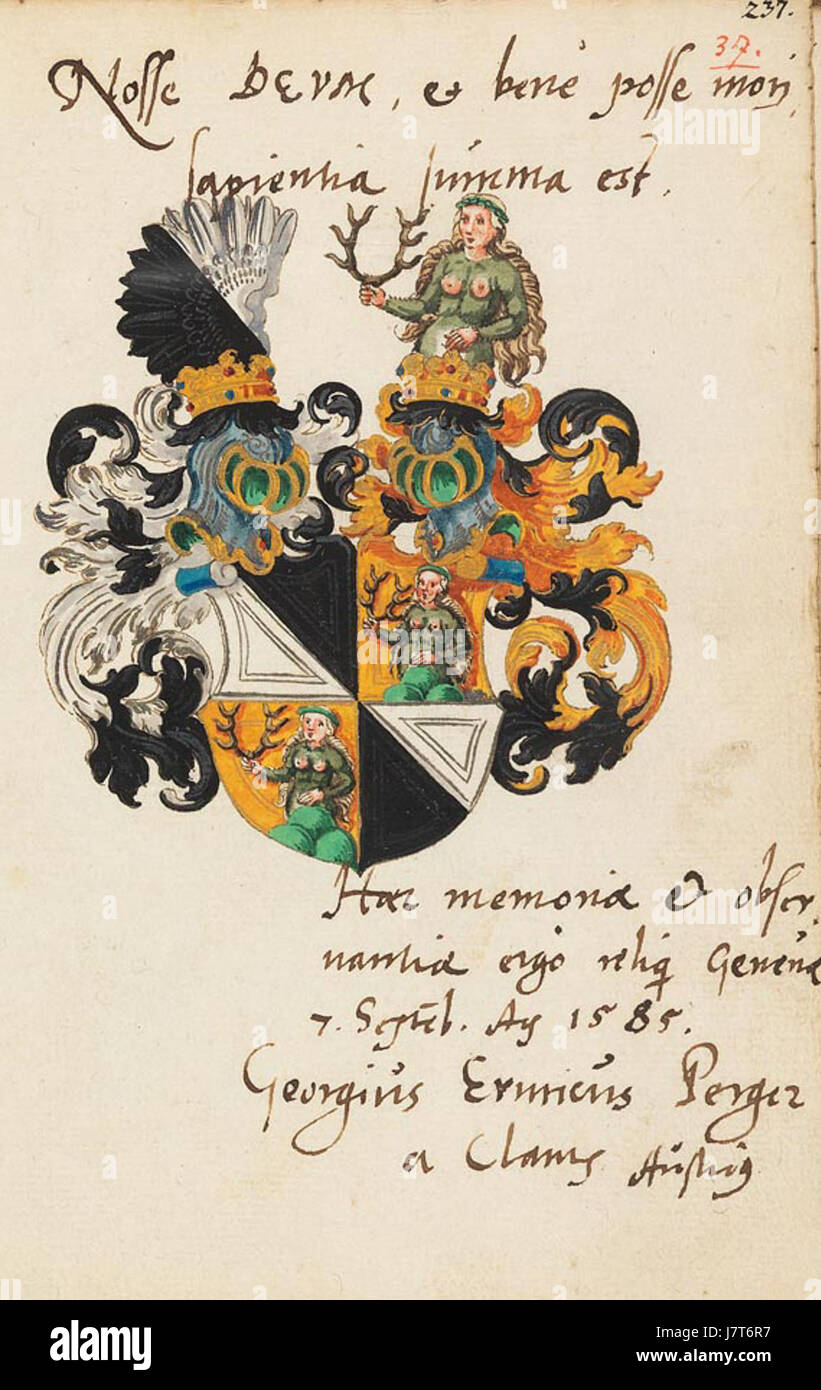 237.
37.
Nosse DEVM, & bene posse mori,
sapientia summa est.
Haec memoriae & obser,
vantiae ergo reliq Genevae
7. Septēb. Aō 1585.
Georgius Ermricus Perger
a Clams Austrius
alamy
alamy
Image ID: J7T6R7
www.alamy.com